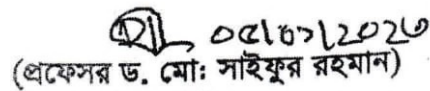 ০৫/০১/২০২৬
(প্রফেসর ড. মোঃ সাইফুর রহমান)